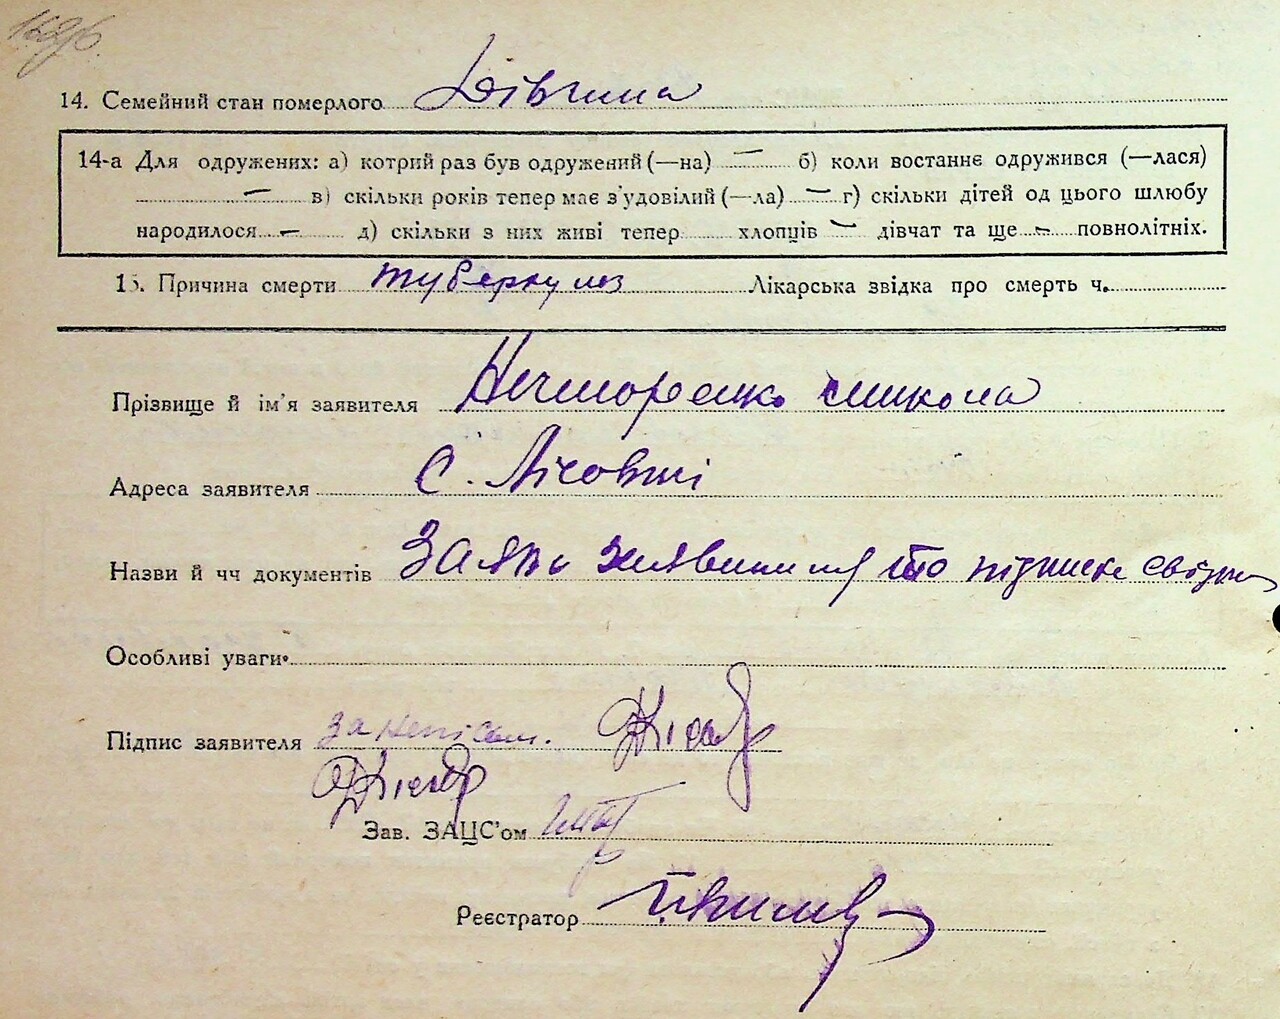 14. Семейний стан померлого Дівчина
14-а Для одружених: а) котрий раз був одружений (—на) — б) коли востаннє одружився (—лася)
— в) скільки років тепер має з'удовілий (—ла) — г) скільки дітей од цього шлюбу
народилося — д) скільки з них живі тепер хлопців — дівчат та ще — повнолітніх.
15. Причина смерти туберкульоз Лікарська звідка про смерть ч.
Прізвище й ім'я заявителя Нечипоренко Микола
Адреса заявителя с. Лісовичі
Назви й чч документів Заява та підписка
Особливі уваги
Підпис заявителя за непісьм.
Зав. ЗАЦС'ом
Реєстратор